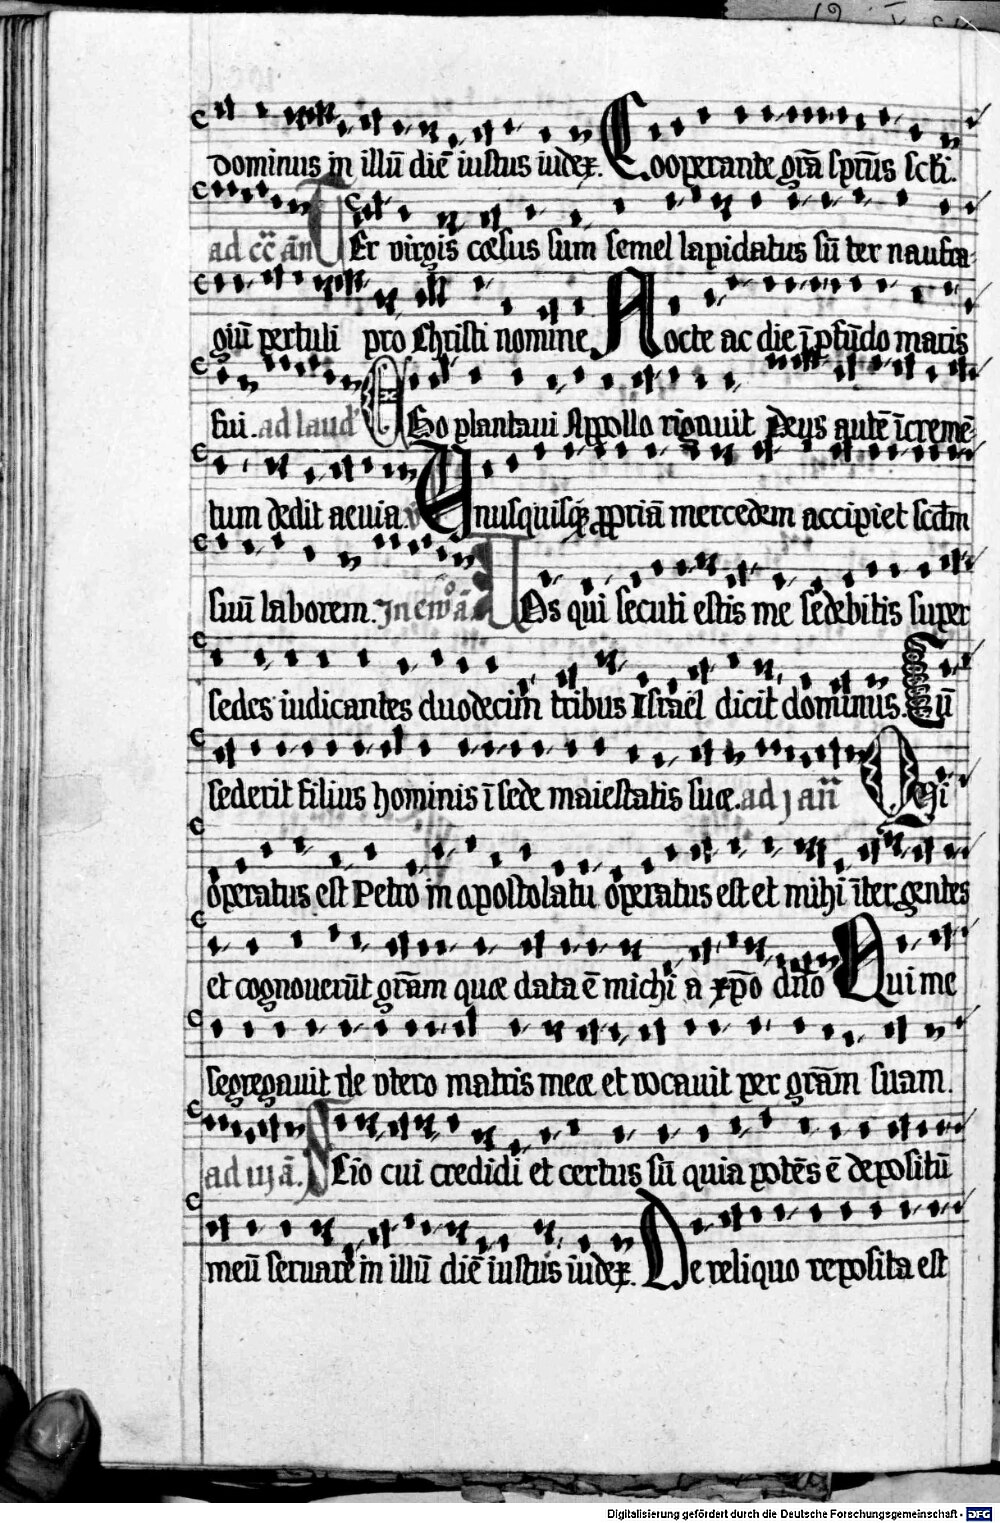 dominus in illū diē iustus iudex. Cooperante grā spūs scti.
ad cc̄ ān Ter virgis cæsus sum semel lapidatus sū ter naufra
giū pertuli pro Christi nomine Nocte ac die ī pfūdo maris
fui. ad laud Ego plantaui Appollo rigauit Deus autē īcremē
tum dedit aeuia. V Unusquisqꝫ ppriā mercedem accipiet scdm
suū laborem. In ewā Vos qui secuti estis me sedebitis super
sedes iudicantes duodecim tribus Israel dicit dominus. Cū
sederit filius hominis ī sede maiestatis suæ. ad j an̄ Qui
operatus est Petro in apostolatu operatus est et mihi īter gentes
et cognouerūt grām quæ data ē michi a xpo dn̄o Qui me
segregauit de vtero matris meæ et vocauit per grām suam.
ad iij ā. Scio cui credidi et certus sū quia potēs ē depositū
meū seruare in illū diē iustus iudex. De reliquo reposita est
Digitalisierung gefördert durch die Deutsche Forschungsgemeinschaft - DFG